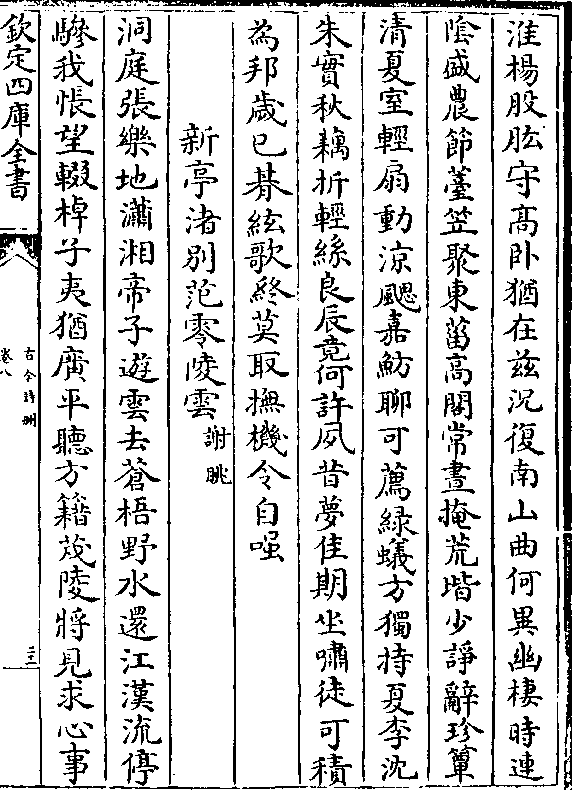 淮楊股肱守髙卧猶在兹況復南山曲何異幽棲時連
隂盛農節薹笠聚東菑高閣常晝掩荒堦少諍辭珍簟
清夏室輕扇動涼颸嘉魴聊可薦緑蟻方獨持夏李沈
朱實秋藕折輕絲良辰竟何許夙昔夢佳期坐嘯徒可積
為邦歲已朞絃歌終莫取撫機令自嗤
新亭渚別范零陵雲謝朓
洞庭張樂地瀟湘帝子遊雲去蒼梧野水還江漢流停
驂我悵望輟棹子夷猶廣平聽方籍茂陵將見求心事
欽定四庫全書
古今詩刪
卷八
二十二